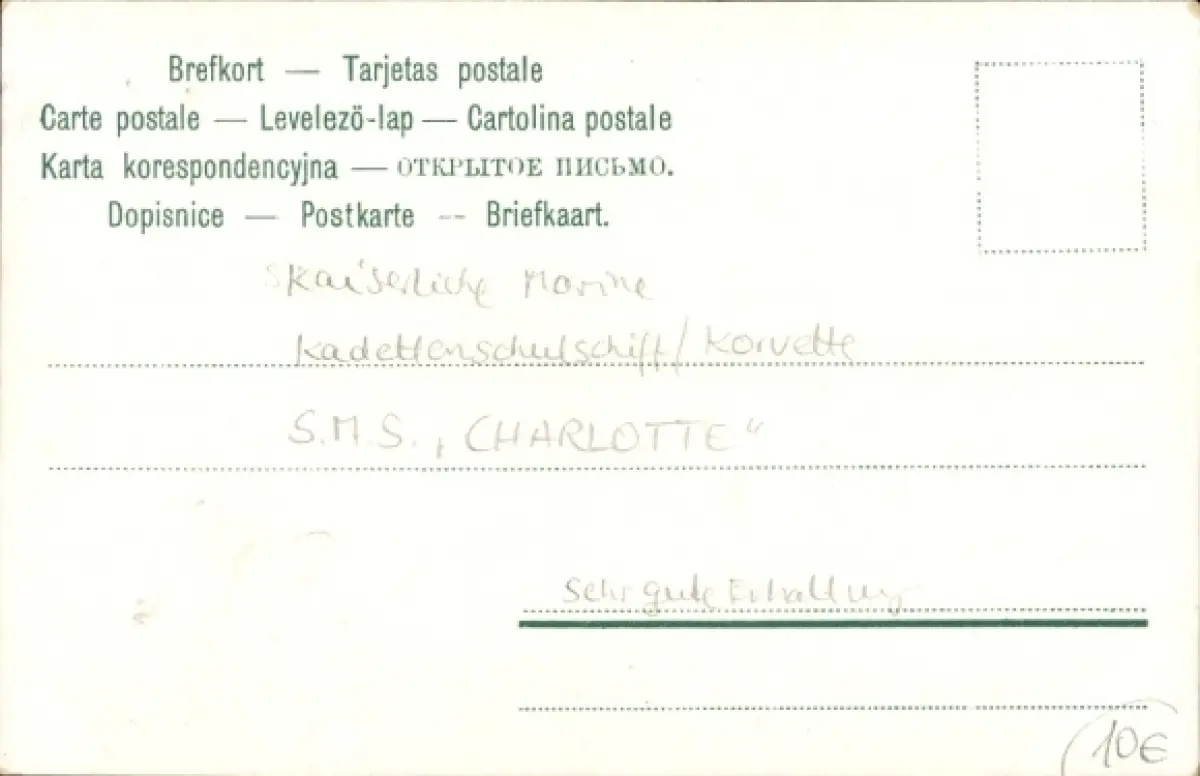 Brefkort — Tarjetas postale
Carte postale — Levelező-lap — Cartolina postale
Karta korespondencyjna — ОТКРЫТОЕ ПИСЬМО.
Dopisnice — Postkarte -- Briefkaart.
Kaiserliche Marine
Kadettenschulschiff/Korvette
S.M.S. „CHARLOTTE“
Sehr gute Erhaltung
10€